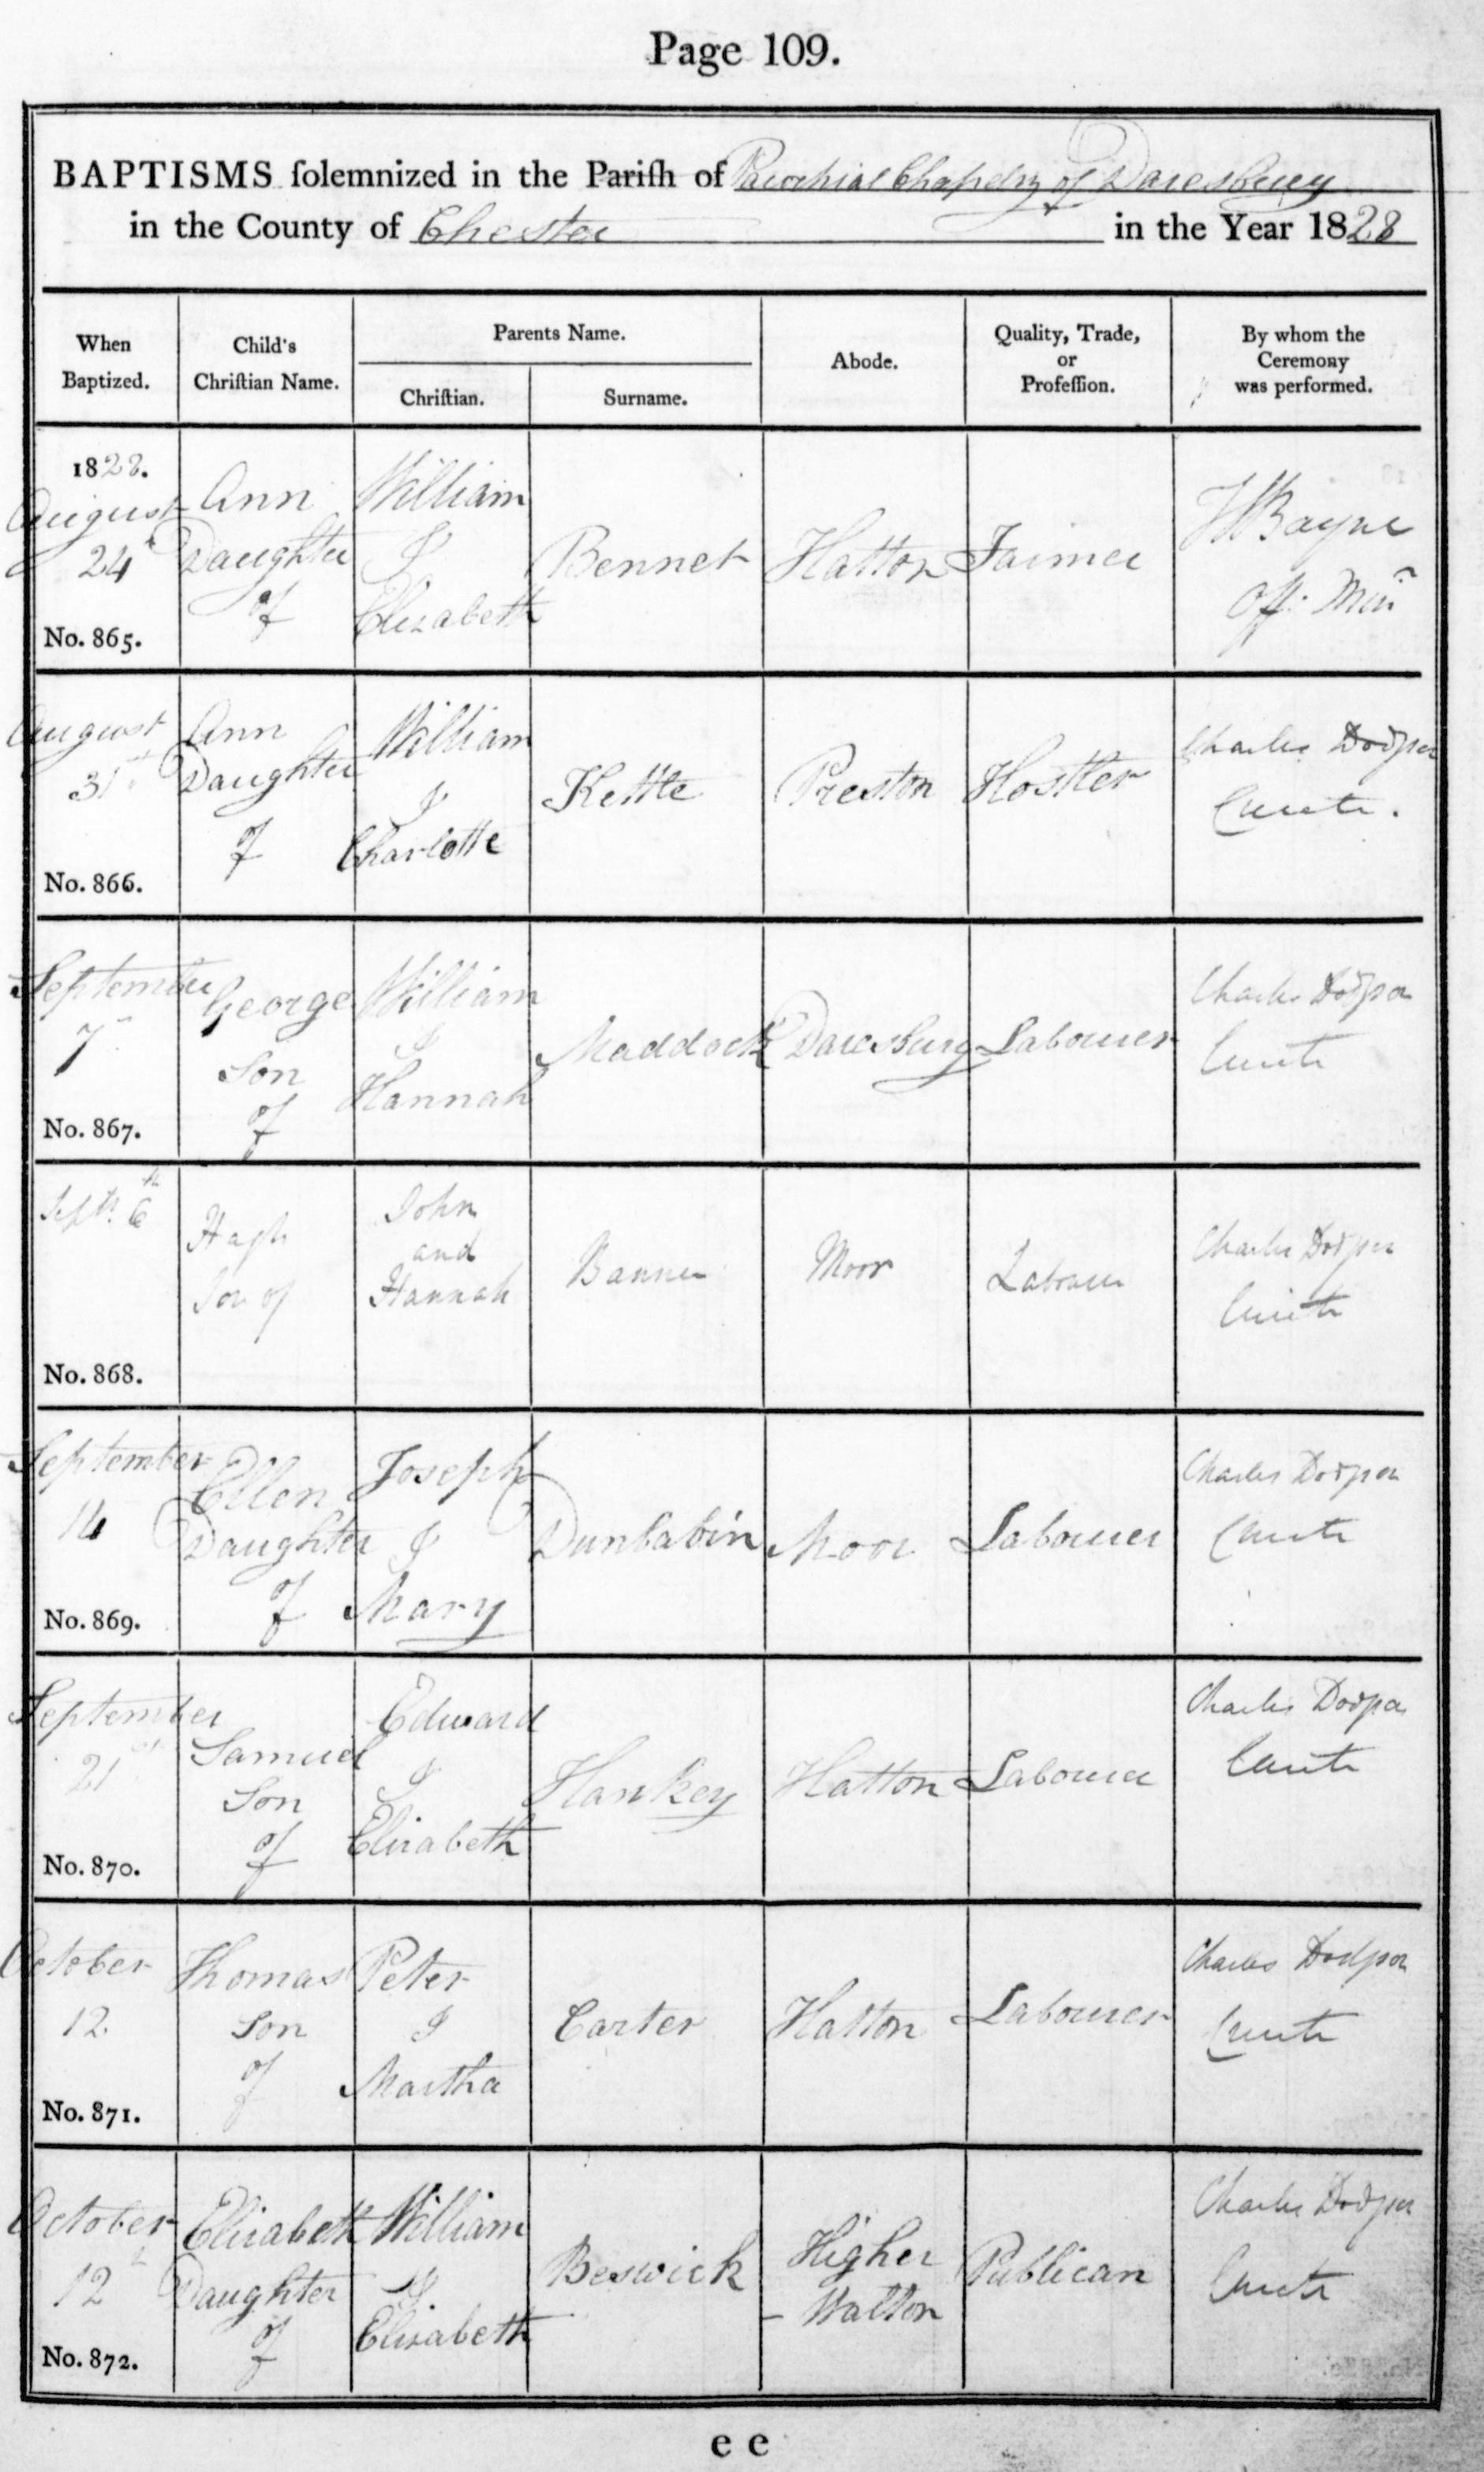 Page 109.
BAPTISMS solemnized in the Parish of Parochial Chapelry of Daresbury
in the County of Chester in the Year 1828
When Baptized.
Child's Christian Name.
Parents Name.
Christian.
Surname.
Abode.
Quality, Trade, or Profession.
By whom the Ceremony was performed.
1828.
August
24
No. 865.
Ann
Daughter
of
William
&
Elizabeth
Bennet
Hatton
Farmer
Bayne
Off. Min
August
31st
No. 866.
Ann
Daughter
of
William
&
Charlotte
Kettle
Preston
Hostler
Charles Dodgson
Curate.
September
7
No. 867.
George
Son
of
William
&
Hannah
Maddock
Daresbury
Labourer
Charles Dodgson
Curate
Septr. 6th
No. 868.
Hugh
Son of
John
and
Hannah
Banner
Moor
Labourer
Charles Dodgson
Curate
September
14
No. 869.
Ellen
Daughter
of
Joseph
&
Mary
Dunbabin
Moor
Labourer
Charles Dodgson
Curate
September
21st
No. 870.
Samuel
Son
of
Edward
&
Elizabeth
Hankey
Hatton
Labourer
Charles Dodgson
Curate
October
12
No. 871.
Thomas
Son
of
Peter
&
Martha
Carter
Hatton
Labourer
Charles Dodgson
Curate
October
12th
No. 872.
Elizabeth
Daughter
of
William
&
Elizabeth
Beswick
Higher
Walton
Publican
Charles Dodgson
Curate
e e